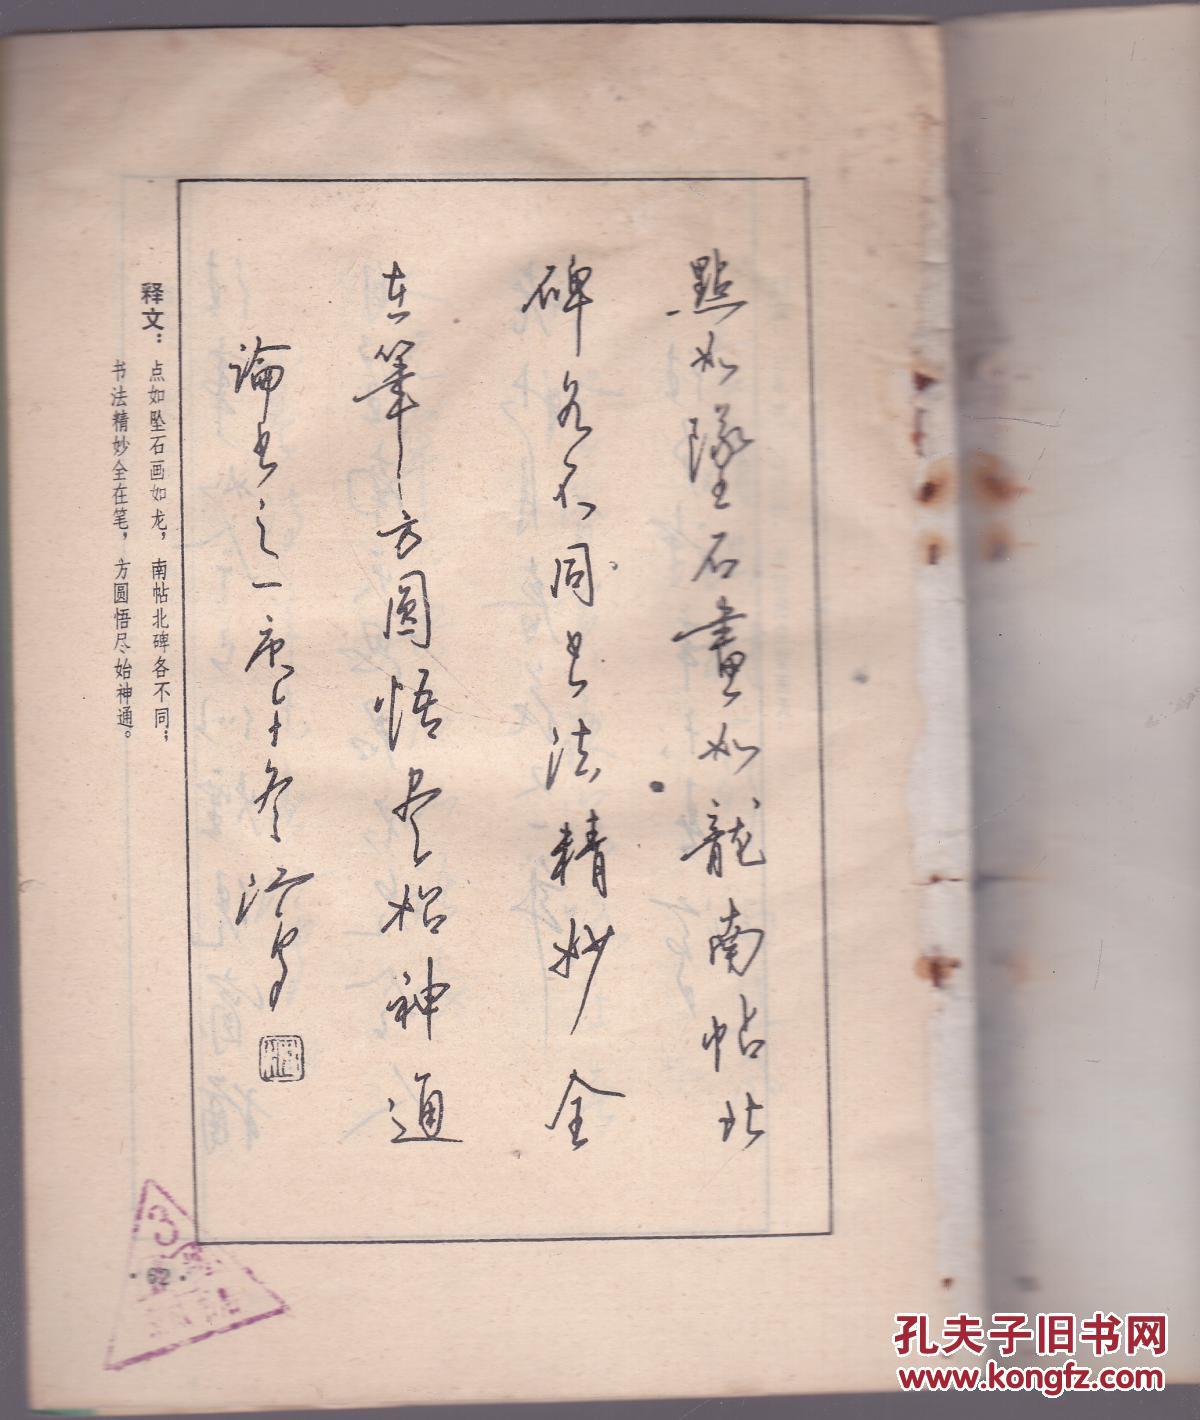 點如墜石畫如龍南帖北
碑各不同书法精妙全
在筆方圓悟尽始神通
論书之一庚午冬
释文：点如坠石画如龙，南帖北碑各不同；
书法精妙全在笔，方圆悟尽始神通。
3
·62·
孔夫子旧书网
www.kongfz.com